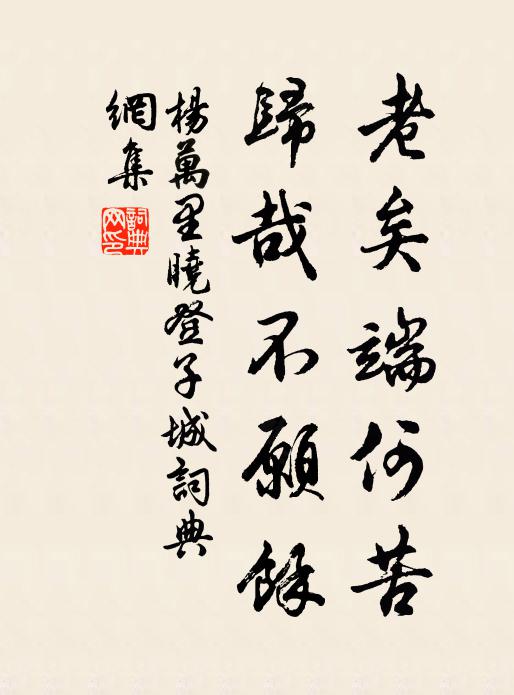 老矣端何苦
歸哉不願餘
楊萬里曉登子城詞典
網集
詞典網印